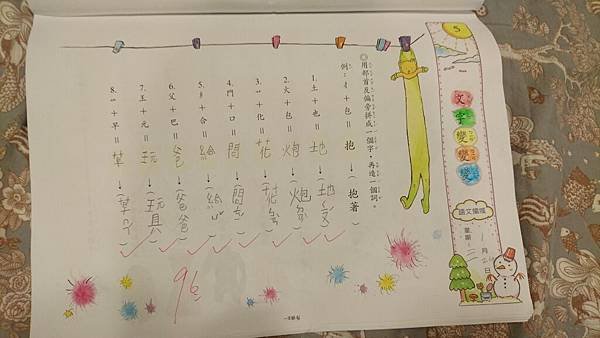 5
文字變變變
星期二
月 日
◎用部首及偏旁拼成一個字，再造一個詞。
例：扌+包＝ 抱 →（抱著）
1. 土+也＝ 地 →（地 ）
2. 火+包＝ 炮 →（炮 ）
3. 艹+化＝ 花 →（花 ）
4. 門+口＝ 問 →（問 ）
5. 糹+合＝ 給 →（給 ）
6. 父+巴＝ 爸 →（爸爸）
7. 王+元＝ 玩 →（玩具）
8. 艹+早＝ 草 →（草 ）
96